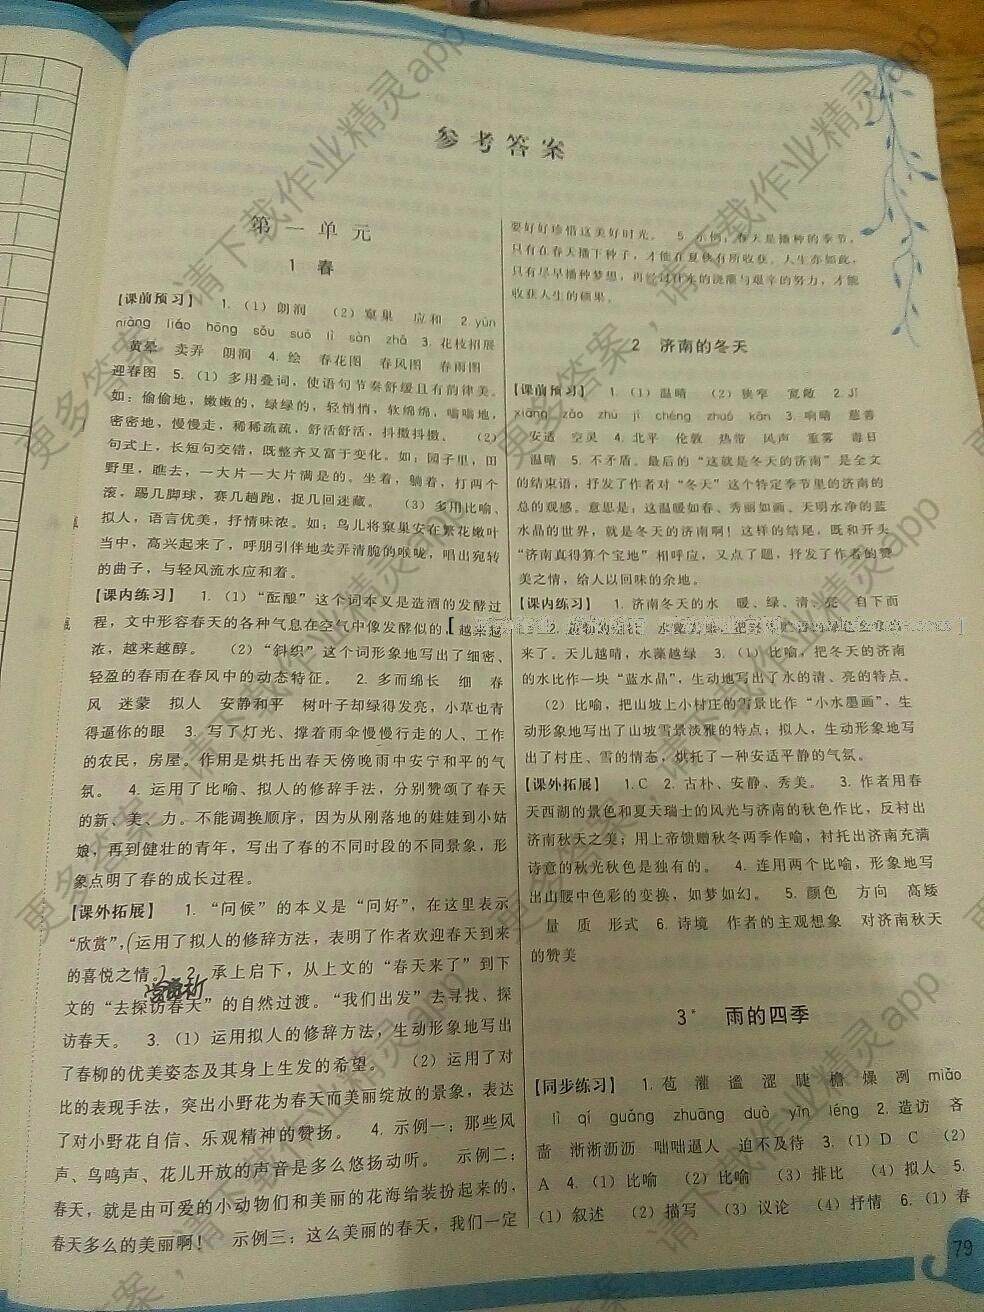 参考答案
第一单元
1 春
【课前预习】 1.(1)朗润 (2)窠巢 应和 2.yùn
niàng liáo hōng sǒu suō lì sàn zhǎ 3.花枝招展
黄晕 卖弄 朗润 4.绘 春花图 春风图 春雨图
迎春图 5.(1)多用叠词,使语句节奏舒缓且有韵律美。
如:偷偷地,嫩嫩的,绿绿的,轻悄悄,软绵绵,嗡嗡地,
密密地,慢慢走,稀稀疏疏,舒活舒活,抖擞抖擞。 (2)
句式上,长短句交错,既整齐又富于变化。如:园子里,田
野里,瞧去,一大片一大片满是的。坐着,躺着,打两个
滚,踢几脚球,赛几趟跑,捉几回迷藏。 (3)多用比喻、
拟人,语言优美,抒情味浓。如:鸟儿将窠巢安在繁花嫩叶
当中,高兴起来了,呼朋引伴地卖弄清脆的喉咙,唱出宛转
的曲子,与轻风流水应和着。
【课内练习】 1.(1)“酝酿”这个词本义是造酒的发酵过
程,文中形容春天的各种气息在空气中像发酵似的,越来越
浓,越来越醇。 (2)“斜织”这个词形象地写出了细密、
轻盈的春雨在春风中的动态特征。 2.多而绵长 细 春
风 迷蒙 拟人 安静和平 树叶子却绿得发亮,小草也青
得逼你的眼 3.写了灯光、撑着雨伞慢慢行走的人、工作
的农民,房屋。作用是烘托出春天傍晚雨中安宁和平的气
氛。 4.运用了比喻、拟人的修辞手法,分别赞颂了春天
的新、美、力。不能调换顺序,因为从刚落地的娃娃到小姑
娘,再到健壮的青年,写出了春的不同时段的不同景象,形
象点明了春的成长过程。
【课外拓展】 1.“问候”的本义是“问好”,在这里表示
“欣赏”,(运用了拟人的修辞方法,表明了作者欢迎春天到来
的喜悦之情。) 2.承上启下,从上文的“春天来了”到下
文的“去探访春天”的自然过渡。“我们出发”去寻找、探
访春天。 3.(1)运用拟人的修辞方法,生动形象地写出
了春柳的优美姿态及其身上生发的希望。 (2)运用了对
比的表现手法,突出小野花为春天而美丽绽放的景象,表达
了对小野花自信、乐观精神的赞扬。 4.示例一:那些风
声、鸟鸣声、花儿开放的声音是多么悠扬动听。 示例二:
春天,就是由可爱的小动物们和美丽的花海给装扮起来的,
春天多么的美丽啊! 示例三:这么美丽的春天,我们一定
要好好珍惜这美好时光。 5.示例:春天是播种的季节,
只有在春天播下种子,才能在夏秋有所收获。人生亦如此,
只有尽早播种梦想,再经过汗水的浇灌与艰辛的努力,才能
收获人生的硕果。
2 济南的冬天
【课前预习】 1.(1)温晴 (2)狭窄 宽敞 2.jī
xiǎng zǎo zhù jì chéng zhuó kān 3.响晴 慈善
安适 空灵 4.北平 伦敦 热带 风声 重雾 毒日
温晴 5.不矛盾。最后的“这就是冬天的济南”是全文
的结束语,抒发了作者对“冬天”这个特定季节里的济南的
总的观感。意思是:这温暖如春、秀丽如画、天明水净的蓝
水晶的世界,就是冬天的济南啊!这样的结尾,既和开头
“济南真得算个宝地”相呼应,又点了题,抒发了作者的赞
美之情,给人以回味的余地。
【课内练习】 1.济南冬天的水 暖、绿、清、亮 自下而
来了。天儿越晴,水藻越绿 3.(1)比喻,把冬天的济南
的水比作一块“蓝水晶”,生动地写出了水的清、亮的特点。
(2)比喻,把山坡上小村庄的雪景比作“小水墨画”,生
动形象地写出了山坡雪景淡雅的特点;拟人,生动形象地写
出了村庄、雪的情态,烘托了一种安适平静的气氛。
【课外拓展】 1.C 2.古朴、安静、秀美。 3.作者用春
天西湖的景色和夏天瑞士的风光与济南的秋色作比,反衬出
济南秋天之美;用上帝馈赠秋冬两季作喻,衬托出济南充满
诗意的秋光秋色是独有的。 4.连用两个比喻,形象地写
出山腰中色彩的变换,如梦如幻。 5.颜色 方向 高矮
量 质 形式 6.诗境 作者的主观想象 对济南秋天
的赞美
3* 雨的四季
【同步练习】 1.苞 灌 谧 涩 睫 檐 燥 冽 miǎo
lì qí guǎng zhuāng duò yīn léng 2.造访 吝
啬 淅淅沥沥 咄咄逼人 迫不及待 3.(1)D C (2)
A 4.(1)比喻 (2)比喻 (3)排比 (4)拟人 5.
(1)叙述 (2)描写 (3)议论 (4)抒情 6.(1)春
79
更多答案,请下载作业精灵app